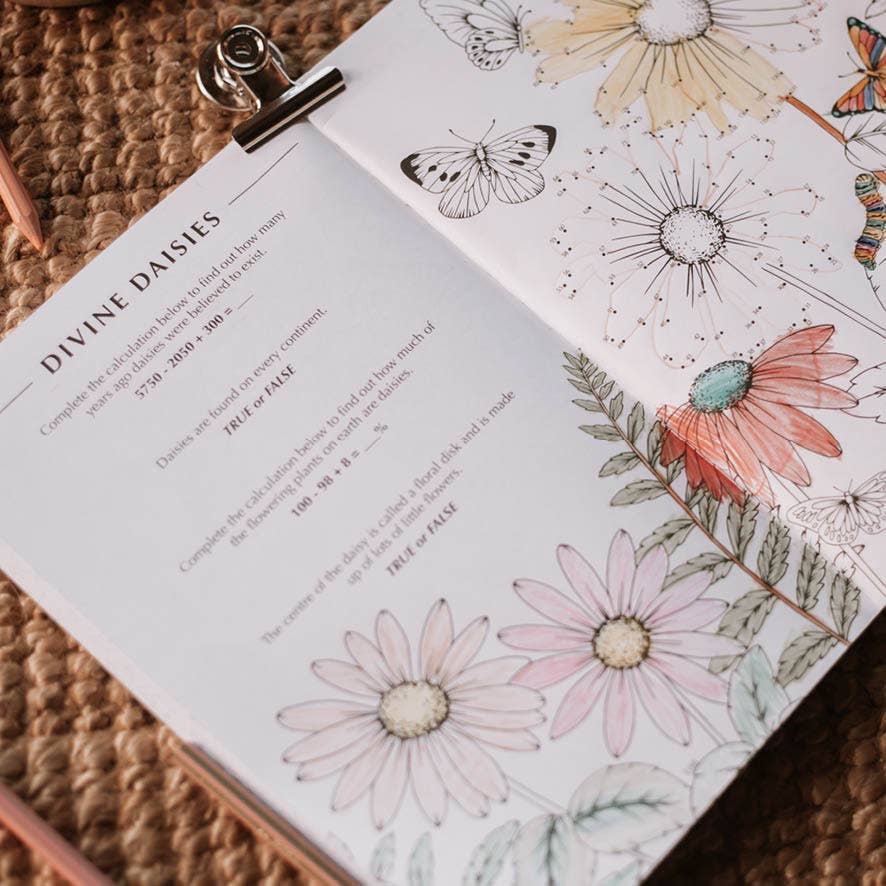 DIVINE DAISIES
Complete the calculation below to find out how many
years ago daisies were believed to exist.
5750 - 2050 + 300 = __
Daisies are found on every continent.
TRUE or FALSE
Complete the calculation below to find out how much of
the flowering plants on earth are daisies.
100 - 98 + 8 = __%
The centre of the daisy is called a floral disk and is made
up of lots of little flowers.
TRUE or FALSE